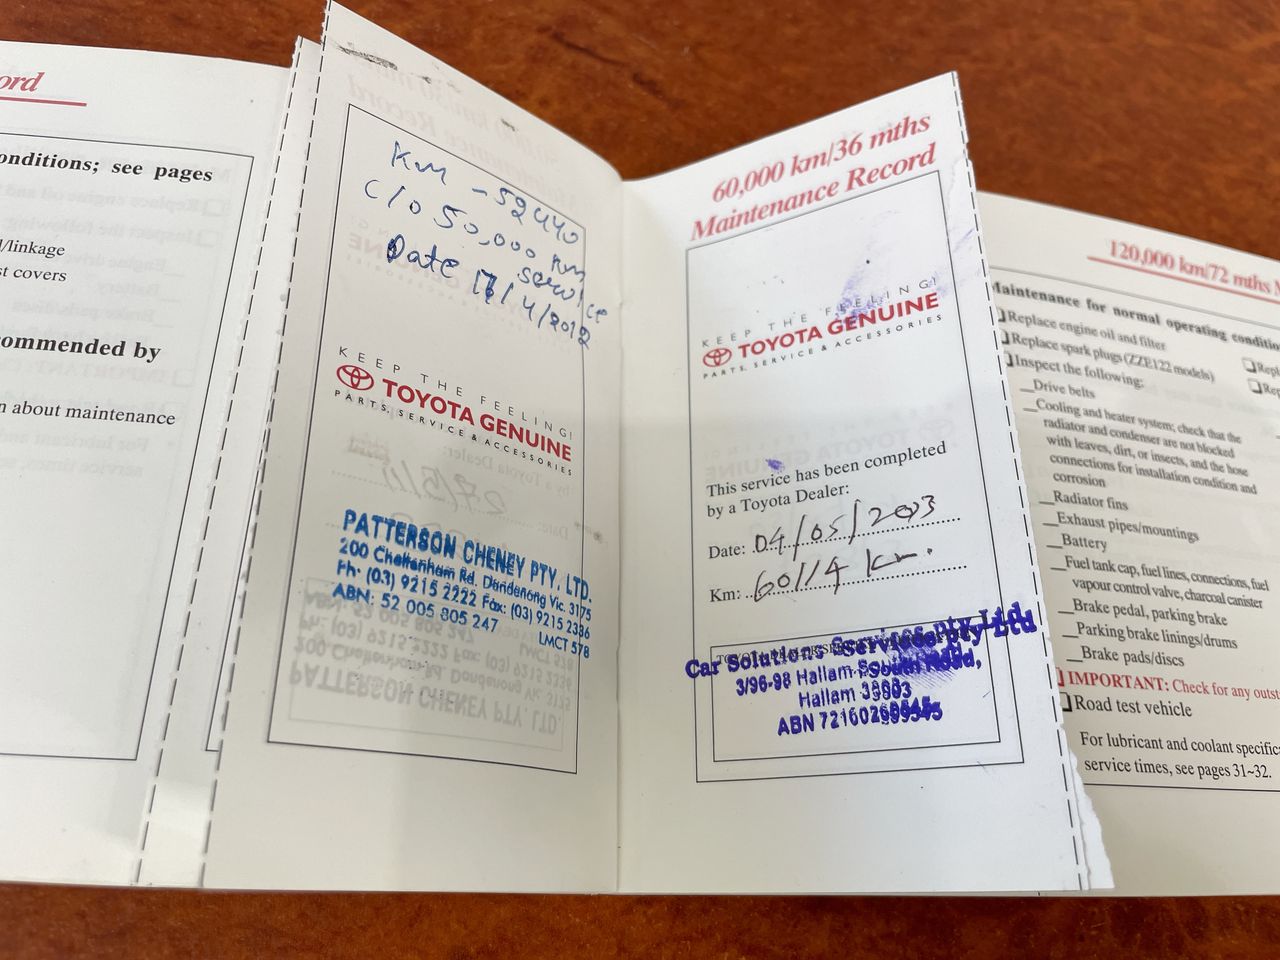 ord
onditions; see pages
l/linkage
st covers
commended by
n about maintenance
Km - 52440
C/O 50,000 Km
Service
Date 17/4/2012
KEEP THE FEELING!
TOYOTA GENUINE
PARTS, SERVICE & ACCESSORIES
PATTERSON CHENEY PTY. LTD.
200 Cheltenham Rd. Dandenong Vic. 3175
Ph: (03) 9215 2222 Fax: (03) 9215 2336
ABN: 52 005 805 247 LMCT 578
60,000 km/36 mths
Maintenance Record
KEEP THE FEELING!
TOYOTA GENUINE
PARTS, SERVICE & ACCESSORIES
This service has been completed
by a Toyota Dealer:
Date: 04/05/2003
Km: 60114 Km.
Car Solutions Services pty Ltd
3/96-98 Hallam South Road,
Hallam 3803
ABN
120,000 km/72 mths M
Maintenance for normal operating conditio
Replace engine oil and filter
Replace spark plugs (ZZE122 models)
Inspect the following:
Drive belts
Cooling and heater system; check that the
radiator and condenser are not blocked
with leaves, dirt, or insects, and the hose
connections for installation condition and
corrosion
Radiator fins
Exhaust pipes/mountings
Battery
Fuel tank cap, fuel lines, connections, fuel
vapour control valve, charcoal canister
Brake pedal, parking brake
Parking brake linings/drums
Brake pads/discs
IMPORTANT: Check for any outst
Road test vehicle
For lubricant and coolant specific
service times, see pages 31~32.
Repl
Rep